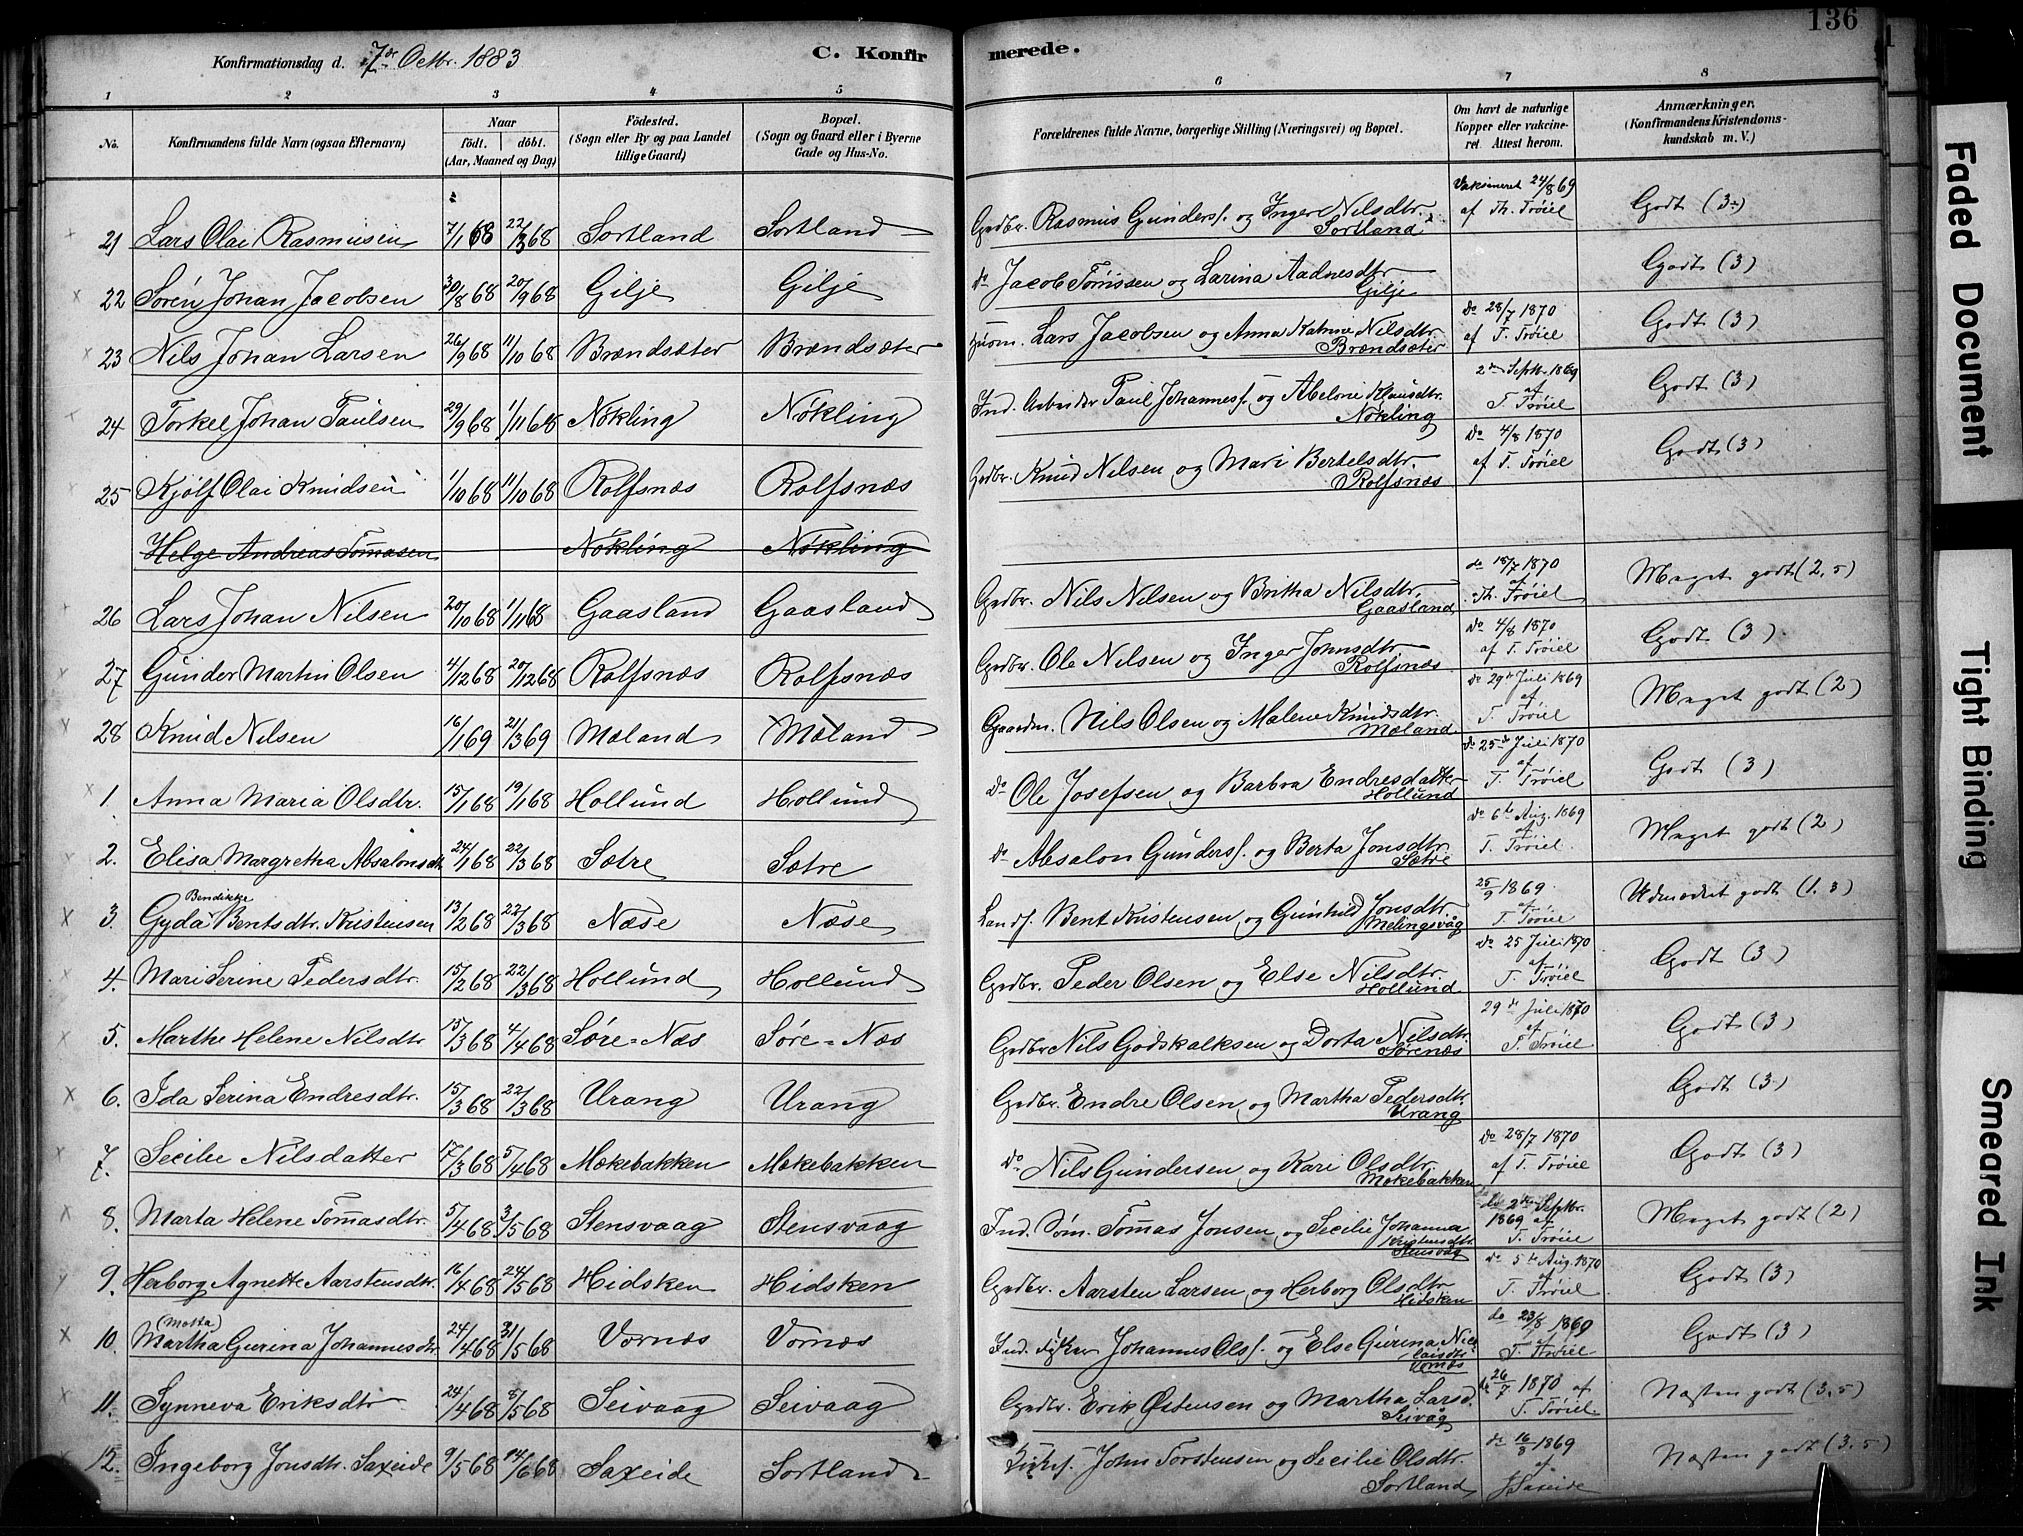 136
Konfirmationsdag d. 7de Octbr. 1883
C. Konfirmerede.
1 2 3 4 5 6 7 8
No. Konfirmandens fulde Navn (ogsaa Efternavn) Naar födt. döbt. (Aar, Maaned og Dag) Födested. (Sogn eller By og paa Landet tillige Gaard) Bopæl. (Sogn og Gaard eller i Byerne Gade og Hus-No. Forældrenes fulde Navne, borgerlige Stilling (Næringsvei) og Bopæl. Om havt de naturlige Kopper eller vaccineret. Attest herom. Anmærkninger, (Konfirmandens Kristendomskundskab m. V.)
21 Lars Olai Rasmusen 7/1 68 22/3 68 Sortland Sortland Grdbr. Rasmus Gunders. og Inger Nilsdtr. Sortland Vaksineret 24/8 69 af Th. Tröiel Godt (3)
22 Sören Johan Jacobsen 30/8 68 20/9 68 Gilje Gilje do Jacob Tönissen og Larina Aadnesdtr Gilje Godt (3)
23 Nils Johan Larsen 26/9 68 11/10 68 Brændsæter Brændsæter Huusm. Lars Jacobsen og Anna Katrine Nilsdtr. Brændsæter Do 28/7 1870 af T. Tröiel Godt (3)
24 Torkel Johan Paulsen 29/9 68 1/11 68 Nökling Nökling Ind. Arbeider Paul Johanness. og Abelone Klausdtr. Nökling 2den Septbr. 1869 af T. Tröiel Godt (3)
25 Kjölf Olai Knudsen 1/10 68 11/10 68 Rolfsnæs Rolfsnæs Grdbr. Knud Nilsen og Mari Bertelsdtr. Rolfsnæs Do 4/8 1870 af T. Tröiel Godt (3)
Helge Andreas Tomasen Nökling Nökling
26 Lars Johan Nilsen 20/10 68 1/11 68 Gaasland Gaasland Grdbr. Nils Nilsen og Britha Nilsdtr. Gaasland do 18/7 1870 af Th. Tröiel Meget godt (2,5)
27 Gunder Martin Olsen 4/12 68 20/12 68 Rolfsnæs Rolfsnæs Grdbr. Ole Nilsen og Inger Johnsdtr Rolfsnæs Do 4/8 1870 af T. Tröiel Godt (3)
28 Knud Nilsen 16/1 69 21/3 69 Mæland Mæland Gaardm. Nils Olsen og Malene Knudsdtr. Mæland Do 29de Juli 1869 af T. Tröiel Meget godt (2)
1. Anna Maria Olsdtr. 15/1 68 19/1 68 Hollund Hollund Do Ole Josefsen og Barbra Endresdatter Hollund Do 25de Juli 1870 af T. Tröiel Godt (3)
2. Elisa Margretha Absalonsdtr 24/1 68 22/3 68 Sætre Sætre do Absalon Gunders. og Berta Jonsdtr. Sætre do 6te Aug. 1869 af T. Tröiel Meget godt (2)
3. Gyda Bendikkje Bentsdtr. Kristensen 13/2 68 22/3 68 Næse Næse Landh. Bent Kristensen og Gunhild Jonsdtr. Melingsvåg 25/9 1869 af T. Tröiel Udmærket godt (1.3)
4. Mari Serine Pedersdtr. 15/2 68 22/3 68 Hollund Hollund Grdbr. Peder Olsen og Else Nilsdtr. Hollund Do 25 Juli 1870 af T. Tröiel Godt (3)
5. Marthe Helene Nilsdtr 15/3 68 4/4 68 Söre=Næs Söre=Næs Grdbr Nils Godskalksen og Dorta Nilsdtr. Sörenæs 29de Juli 1870 af T. Tröiel Godt (3)
6. Ida Serina Endresdtr. 15/3 68 22/3 68 Urang Urang Grdbr. Endre Olsen og Martha Pedersdtr. Urang Godt (3)
7. Secilie Nilsdatter 17/3 68 5/4 68 Mækebakken Mækebakken Do Nils Gundersen og Kari Olsdtr. Mækebakken Do 28/7 1870 af T. Tröiel Godt (3)
8. Marta Helene Tomasdtr. 5/4 68 3/5 68 Stensvaag Stensvaag Ind. Söm. Tomas Jonsen og Secilie Johanna Kristensdtr. Stensvåg Do 2den Septbr. 1869 af T. Tröiel Meget godt (2)
9. Herborg Agnette Aarstensdtr. 16/4 68 24/5 68 Hidsken Hidsken Grdbr. Aarsten Larsen og Herborg Olsdtr Hidsken do 5te Aug. 1870 af T. Tröiel Godt (3)
10. Martha (Motta) Gurina Johannesdtr. 24/4 68 31/5 68 Vornæs Vornæs Ind. Fisker Johannes Ols. og Else Gurina Nicolaisdtr Vornæs do 23/8 1869 af T. Tröiel Godt (3)
11. Synneva Eriksdtr 24/4 68 8/5 68 Seivaag Seivaag Grdbr. Erik Østensen og Martha Larsd. Seivåg do 26/7 1870 af T. Tröiel Næsten godt (3,5)
12. Ingeborg Jonsdtr. Saxeide 9/5 68 14/6 68 Saxeide Sortland John Torstensen og Secilie Olsdtr. Sortland do 16/8 1869 af Saxeide Næsten godt (3.5)
Faded Document
Tight Binding
Smeared Ink